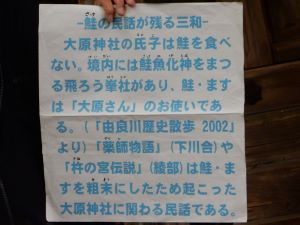 -鮭の民話が残る三和-
大原神社の氏子は鮭を食べ
ない。境内には鮭魚化神をまつ
る飛ろう峯社があり、鮭・ます
は「大原さん」のお使いであ
る。(「由良川歴史散歩 2002」
より)「薬師物語」(下川合)や
「杵の宮伝説」(綾部)は鮭・ま
すを粗末にしたため起こった
大原神社に関わる民話である。